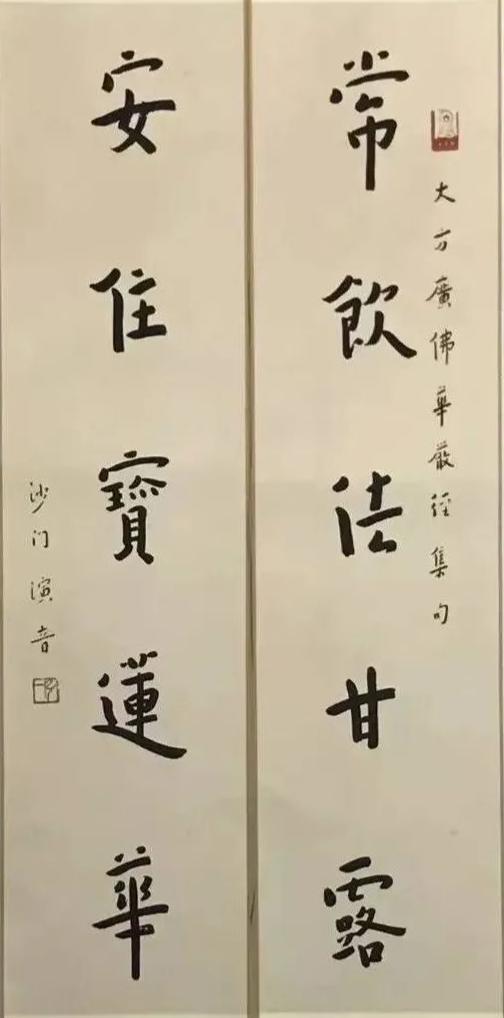 大方廣佛華嚴經集句
常飲法甘露
安住寶蓮華
沙门演音